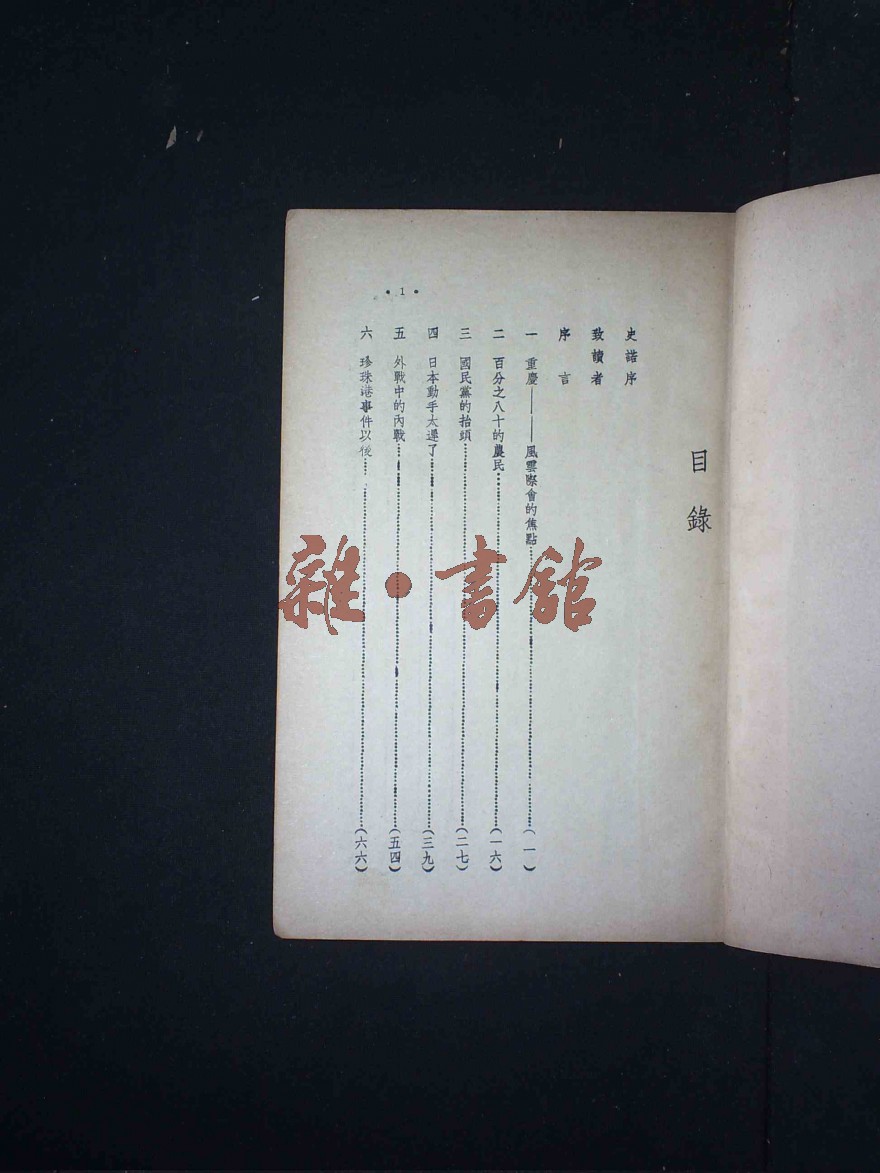 目錄
史諾序
致讀者
序言
一 重慶——風雲際會的焦點……(一)
二 百分之八十的農民……(一六)
三 國民黨的抬頭……(二七)
四 日本動手太遲了……(三九)
五 外戰中的內戰……(五四)
六 珍珠港事件以後……(六六)
• 1 •
雜•書館